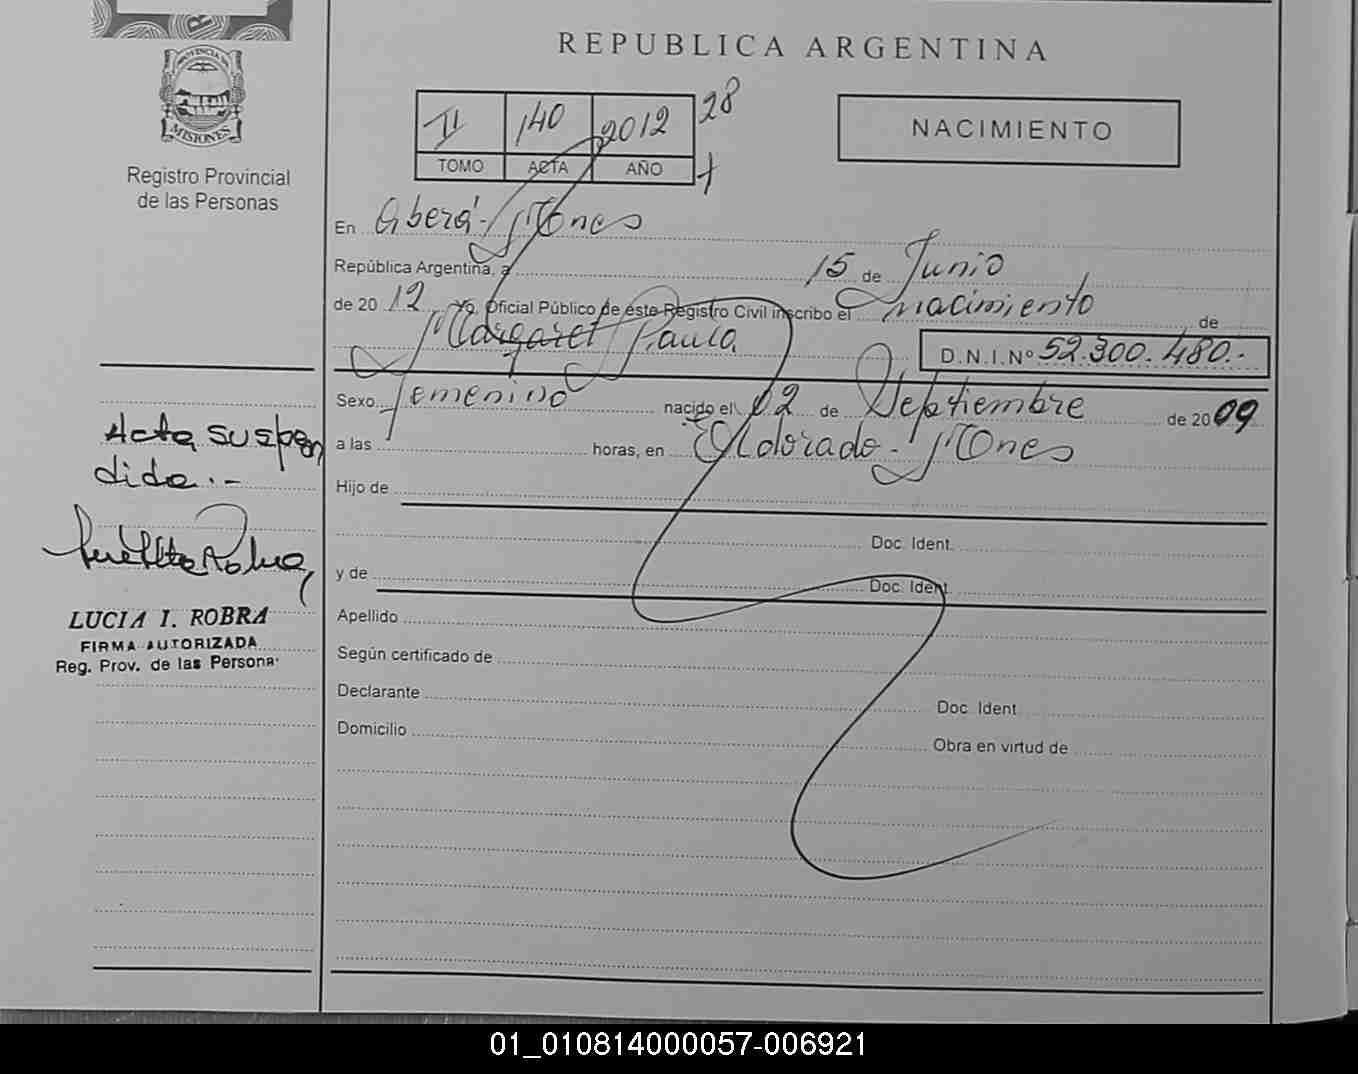 PROVINCIA DE
MISIONES
Registro Provincial
de las Personas
REPUBLICA ARGENTINA
II 140 2012 28
TOMO ACTA AÑO
NACIMIENTO
En Aberá - Mnes
República Argentina, a 15 de Junio
de 2012, Yo, Oficial Público de este Registro Civil inscribo el nacimiento de
Margaret Paula D.N.I.Nº 52.300.480.-
Sexo femenino nacido el 02 de Septiembre de 2009
a las horas, en Eldorado - Mnes
Hijo de
Doc. Ident.
y de Doc. Ident.
Apellido
Según certificado de
Declarante Doc. Ident.
Domicilio Obra en virtud de
Acta suspen
dida.-
LUCIA I. ROBRA
FIRMA AUTORIZADA
Reg. Prov. de las Persona
01_010814000057-006921